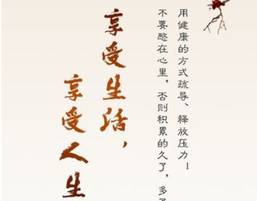 用健康的方式疏导、释放压力！
不要憋在心里，否则积累的久了，多
享受生活，
享受人生